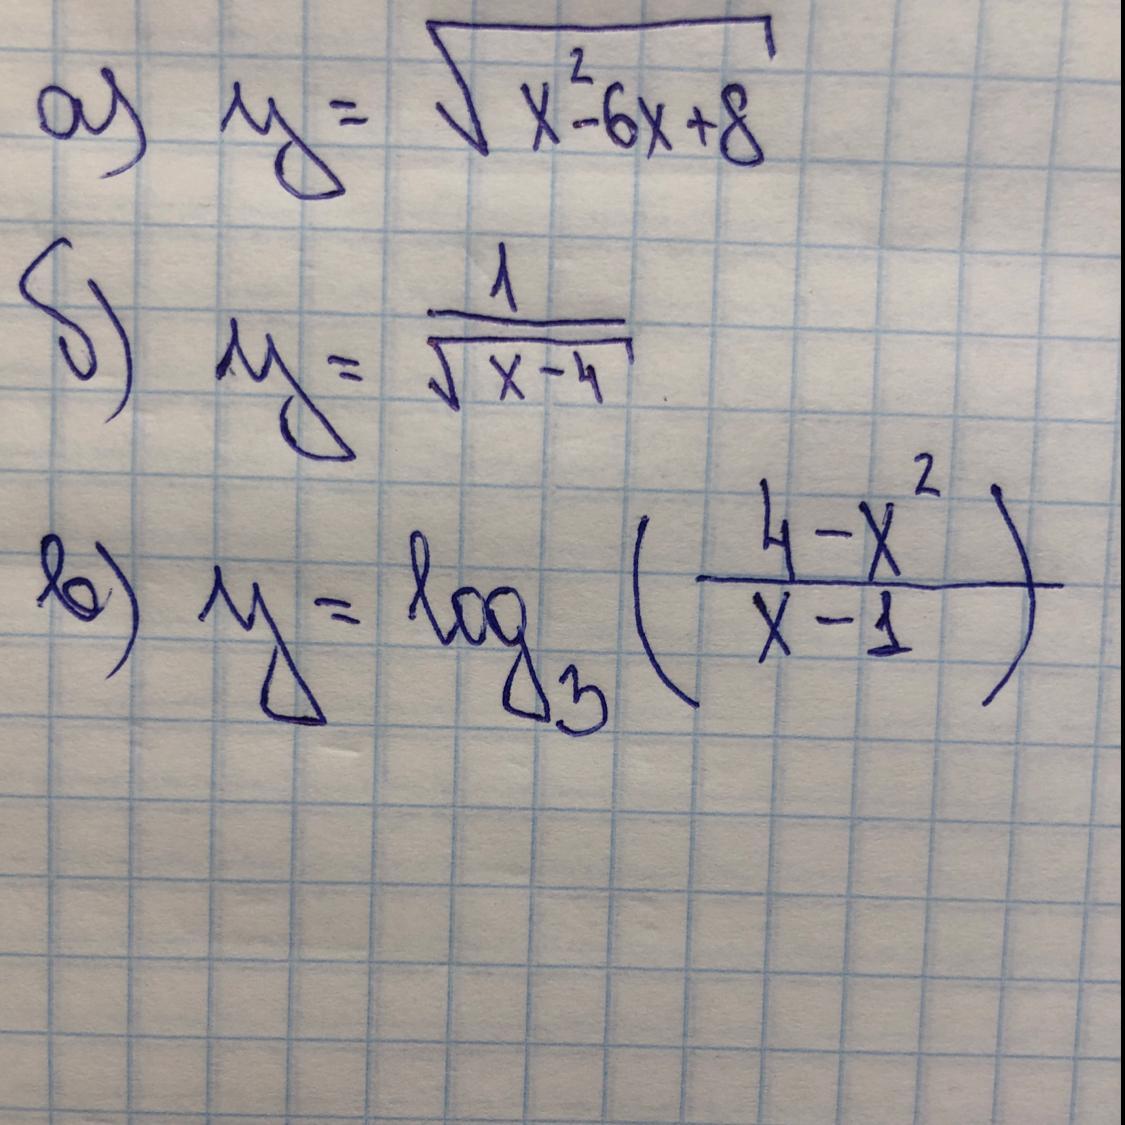 а) y = √(x²-6x+8)
б) y = 1/√(x-4)
в) y = log₃((4-x²)/(x-1))